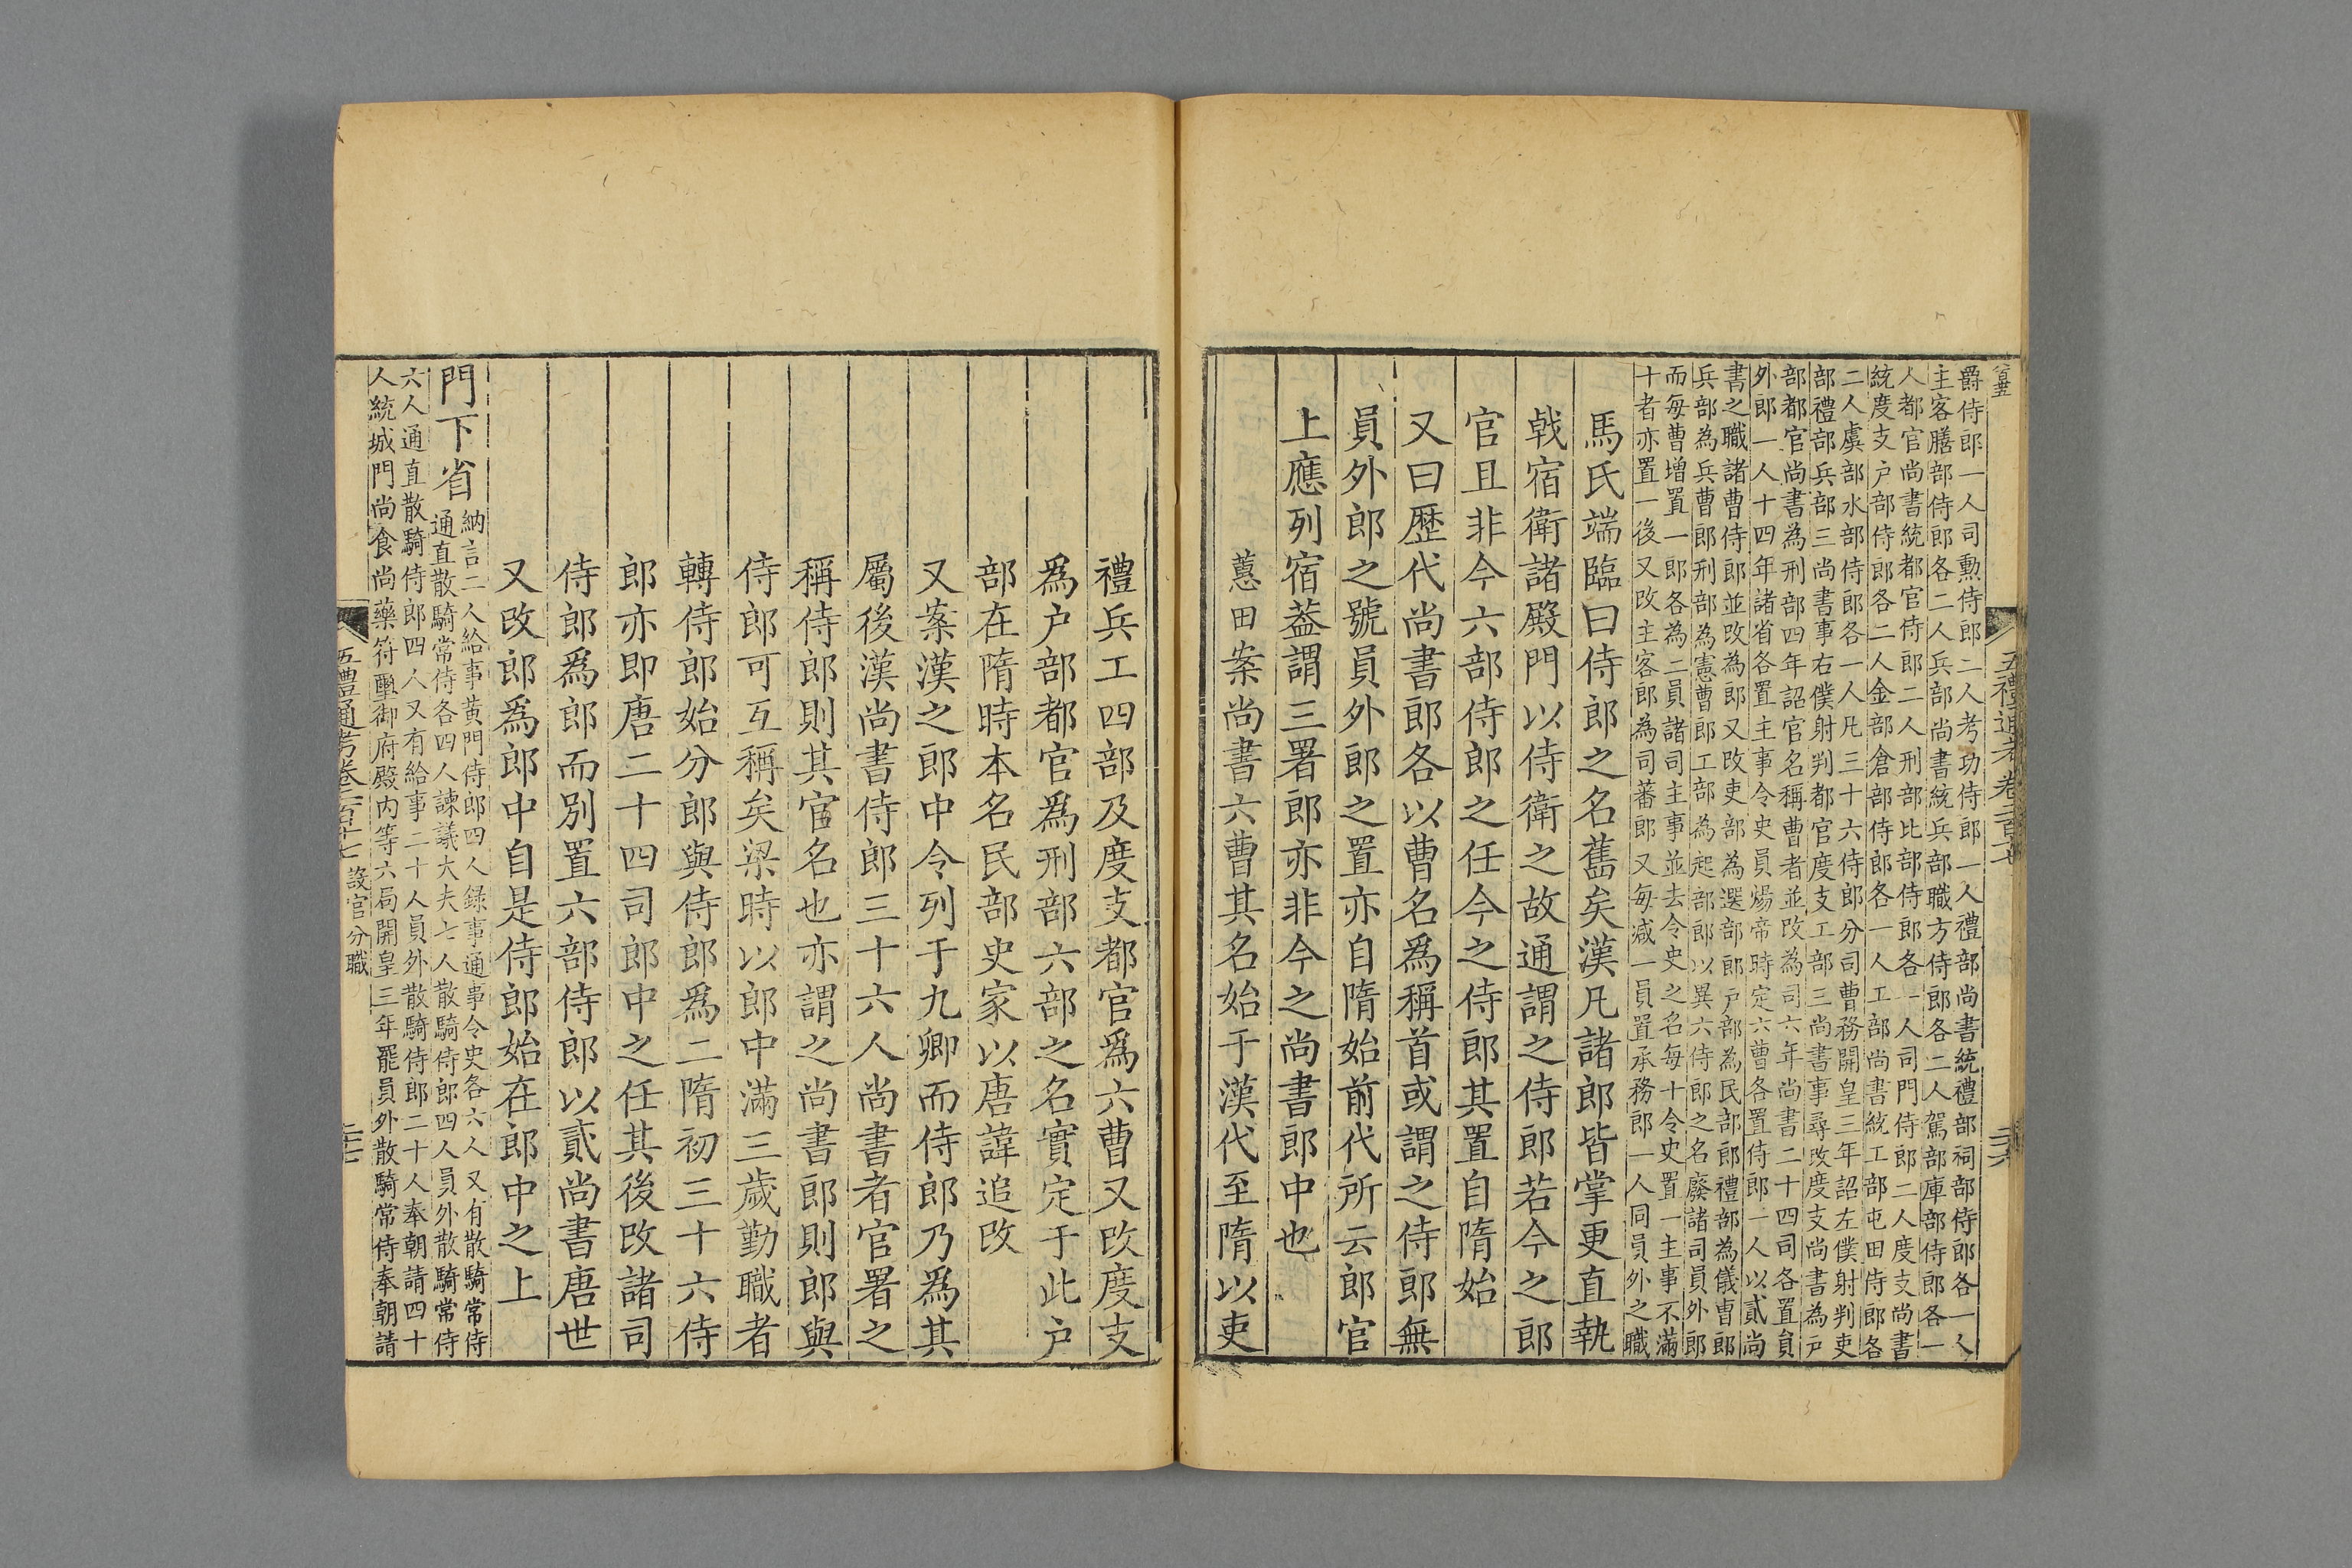 爵侍郎一人司勲侍郎二人考功侍郎一人禮部尚書統禮部祠部侍郎各一人
主客膳部侍郎各二人兵部尚書統兵部職方侍郎各二人駕部庫部侍郎各一
人都官尚書統都官侍郎二人刑部比部侍郎各一人司門侍郎二人度支尚書
統度支户部侍郎各二人金部倉部侍郎各一人工部尚書統工部屯田侍郎各
二人虞部水部侍郎各一人凡三十六侍郎分司曹務開皇三年詔左僕射判吏
部禮部兵部三尚書事右僕射判都官度支工部三尚書事尋改度支尚書為户
部都官尚書為刑部四年詔官名稱曹者並改為司六年尚書二十四司各置員
外郎一人十四年諸省各置主事令史員煬帝時定六曹各置侍郎一人以貳尚
書之職諸曹侍郎並改為郎又改吏部為選部郎户部為民部郎禮部為儀曹郎
兵部為兵曹郎刑部為憲曹郎工部為起部郎以異六侍郎之名廢諸司員外郎
而每曹增置一郎各為二員諸司主事並去令史之名每十令史置一主事不滿
十者亦置一後又改主客郎為司蕃郎又每減一員置承務郎一人同員外之職
馬氏端臨曰侍郎之名舊矣漢凡諸郎皆掌更直執
戟宿衛諸殿門以侍衛之故通謂之侍郎若今之郎
官且非今六部侍郎之任今之侍郎其置自隋始
又曰歷代尚書郎各以曹名爲稱首或謂之侍郎無
員外郎之號員外郎之置亦自隋始前代所云郎官
上應列宿葢謂三署郎亦非今之尚書郎中也
蕙田案尚書六曹其名始于漢代至隋以吏
五禮通考卷二百十七
二十六
禮兵工四部及度支都官爲六曹又改度支
爲户部都官爲刑部六部之名實定于此户
部在隋時本名民部史家以唐諱追改
又案漢之郎中令列于九卿而侍郎乃爲其
屬後漢尚書侍郎三十六人尚書者官署之
稱侍郎則其官名也亦謂之尚書郎則郎與
侍郎可互稱矣梁時以郎中滿三歲勤職者
轉侍郎始分郎與侍郎爲二隋初三十六侍
郎亦即唐二十四司郎中之任其後改諸司
侍郎爲郎而別置六部侍郎以貳尚書唐世
又改郎爲郎中自是侍郎始在郎中之上
門下省納言二人給事黄門侍郎四人錄事通事令史各六人又有散騎常侍
通直散騎常侍各四人諫議大夫七人散騎侍郎四人員外散騎常侍
六人通直散騎侍郎四人又有給事二十人員外散騎侍郎二十人奉朝請四十
人統城門尚食尚藥符璽御府殿内等六局開皇三年罷員外散騎常侍奉朝請
五禮通考卷二百十七 設官分職
二十七